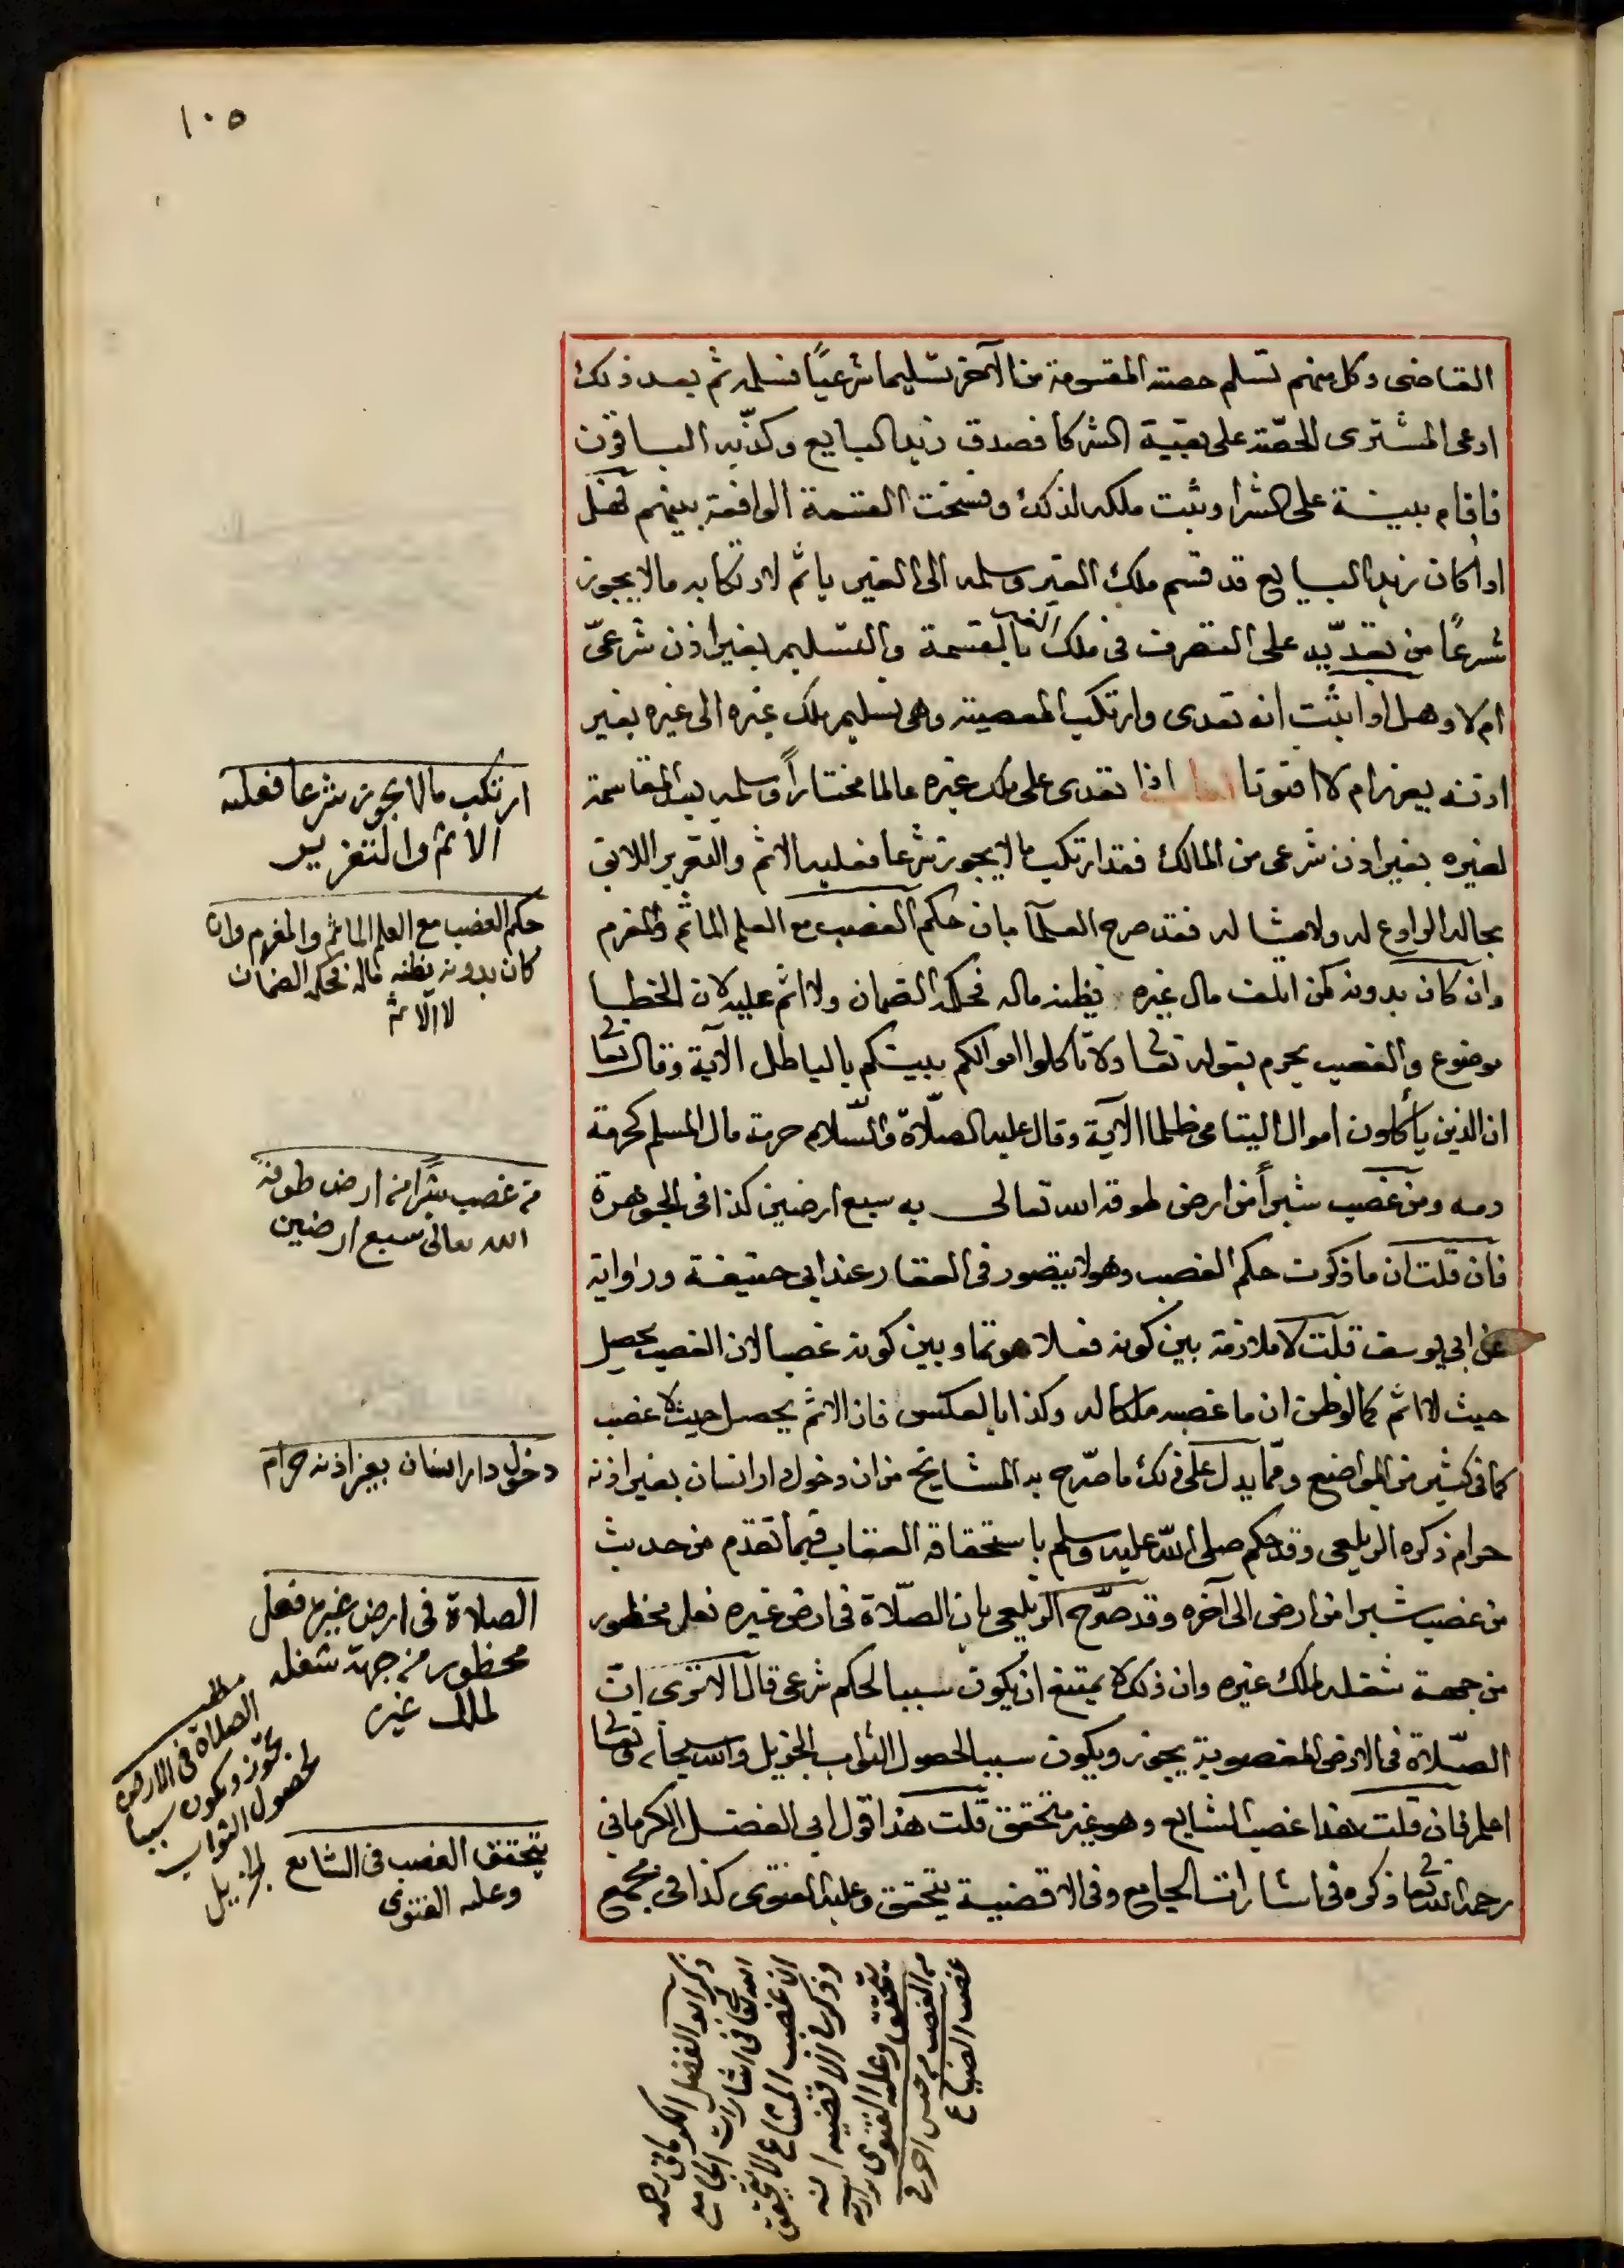 ١٠٥
القاضى وكل منهم تسلم حصته المقسومة من الآخر تسليما شرعيًا فسلمه ثم بعد ذلك
ادعى المشترى الحصّة على بقية الشركا فصدق زيد البايع وكذّبه الباقون
فاقام بينة على الشرا وثبت ملكه لذلك وفسخت القسمة الواقعة بينهم فهل
اذا كان زيد البايع قد قسم ملك الغير وسلمه الى الغير ياثم لارتكابه مالا يجوز
شرعًا من تعدّيه على التصرف فى ملك الغير بالقسمة والتسليم بغير اذن شرعىّ
ام لا وهل اذا ثبت انه تعدى وارتكب المعصية وهى تسليم ملك غيره الى غيره بغير
اذنه يعزر ام لا افتونا اجاب اذا تعدى على ملك غيره عالما مختارًا وسلمه بعد المقاسمة
لغيره بغير اذن شرعى من المالك فقد ارتكب ما لا يجوز شرعا فعليه الاثم والتعزير اللايق
بحاله الرادع له ولامثاله فقد صرح العلمآ بان حكم الغصب مع العلم الماثم والمغرم
وان كان بدونه كمن اتلف مال غيره يظنه ماله فحكمه الضمان ولا اثم عليه لان الخطا
موضوع والغصب يحرم بقوله تعالى ولا تأكلوا اموالكم بينكم بالباطل الآية وقال تعالى
ان الذين يأكلون اموال اليتامى ظلما الآية وقال عليه الصلّاة والسّلام حرمة مال المسلم كحرمة
دمه ومن غصب شبرًا من ارض طوقه الله تعالى به سبع ارضين كذا فى الجوهرة
فان قلت ان ما ذكرت حكم الغصب وهو لا يتصور فى العقار عند ابى حنيفة ورواية
عن ابى يوسف قلت لا ملازمة بين كونه فعلا موثما وبين كونه غصبا لان الغصب يحصل
حيث لا اثم كما لو ظن ان ما غصبه ملكا له وكذا بالعكس فان الاثم يحصل حيث لا غصب
كما فى كثير من المواضع وممّا يدل على ذلك ما صرّح به المشايخ من ان دخول دار انسان بغير اذنه
حرام ذكره الزيلعى وقد حكم صلى الله عليه وسلم باستحقاقه العقاب فيما تقدم من حديث
من غصب شبرا من ارض الى آخره وقد صرّح الزيلعى بان الصّلاة فى ارض غيره فعل محظور
من جهة شغله لملك غيره وان ذلك لا يمتنع ان يكون سببا لحكم شرعى قال الا ترى انّ
الصّلاة فى الارض المغصوبة يجوز ويكون سببا لحصول الثواب الجزيل والله سبحانه وتعالى
اعلم فان قلت هذا غصب الشايع وهو غير متحقق قلت هذا قول ابى الفضل الكرمانى
رحمه الله تعالى ذكره فى اشارات الجامع وفى الاقضية يتحقق وعليه الفتوى كذا فى مجمع
ارتكب مالا يجوز شرعا فعليه
الاثم والتعزير
حكم الغصب مع العلم الماثم والمغرم وان
كان بدونه يظنه ماله فحكمه الضمان
لا الاثم
من غصب شبرًا من ارض طوقه
الله تعالى سبع ارضين
دخول دار انسان بغير اذنه حرام
الصلاة فى ارض غيره فعل
محظور من جهة شغله
لملك غيره
مطلب
الصلاة فى الارض
تجوز ويكون سببا
لحصول الثواب
الجزيل
يتحقق الغصب فى الشايع
وعليه الفتوى
ذكر ابو الفضل الكرمانى رحمه
الله تعالى فى اشارات الجامع
ان غصب المشاع لا يتحقق
وذكر فى الاقضية انه
يتحقق وعليه الفتوى
من الغصب من
غصب الضياع